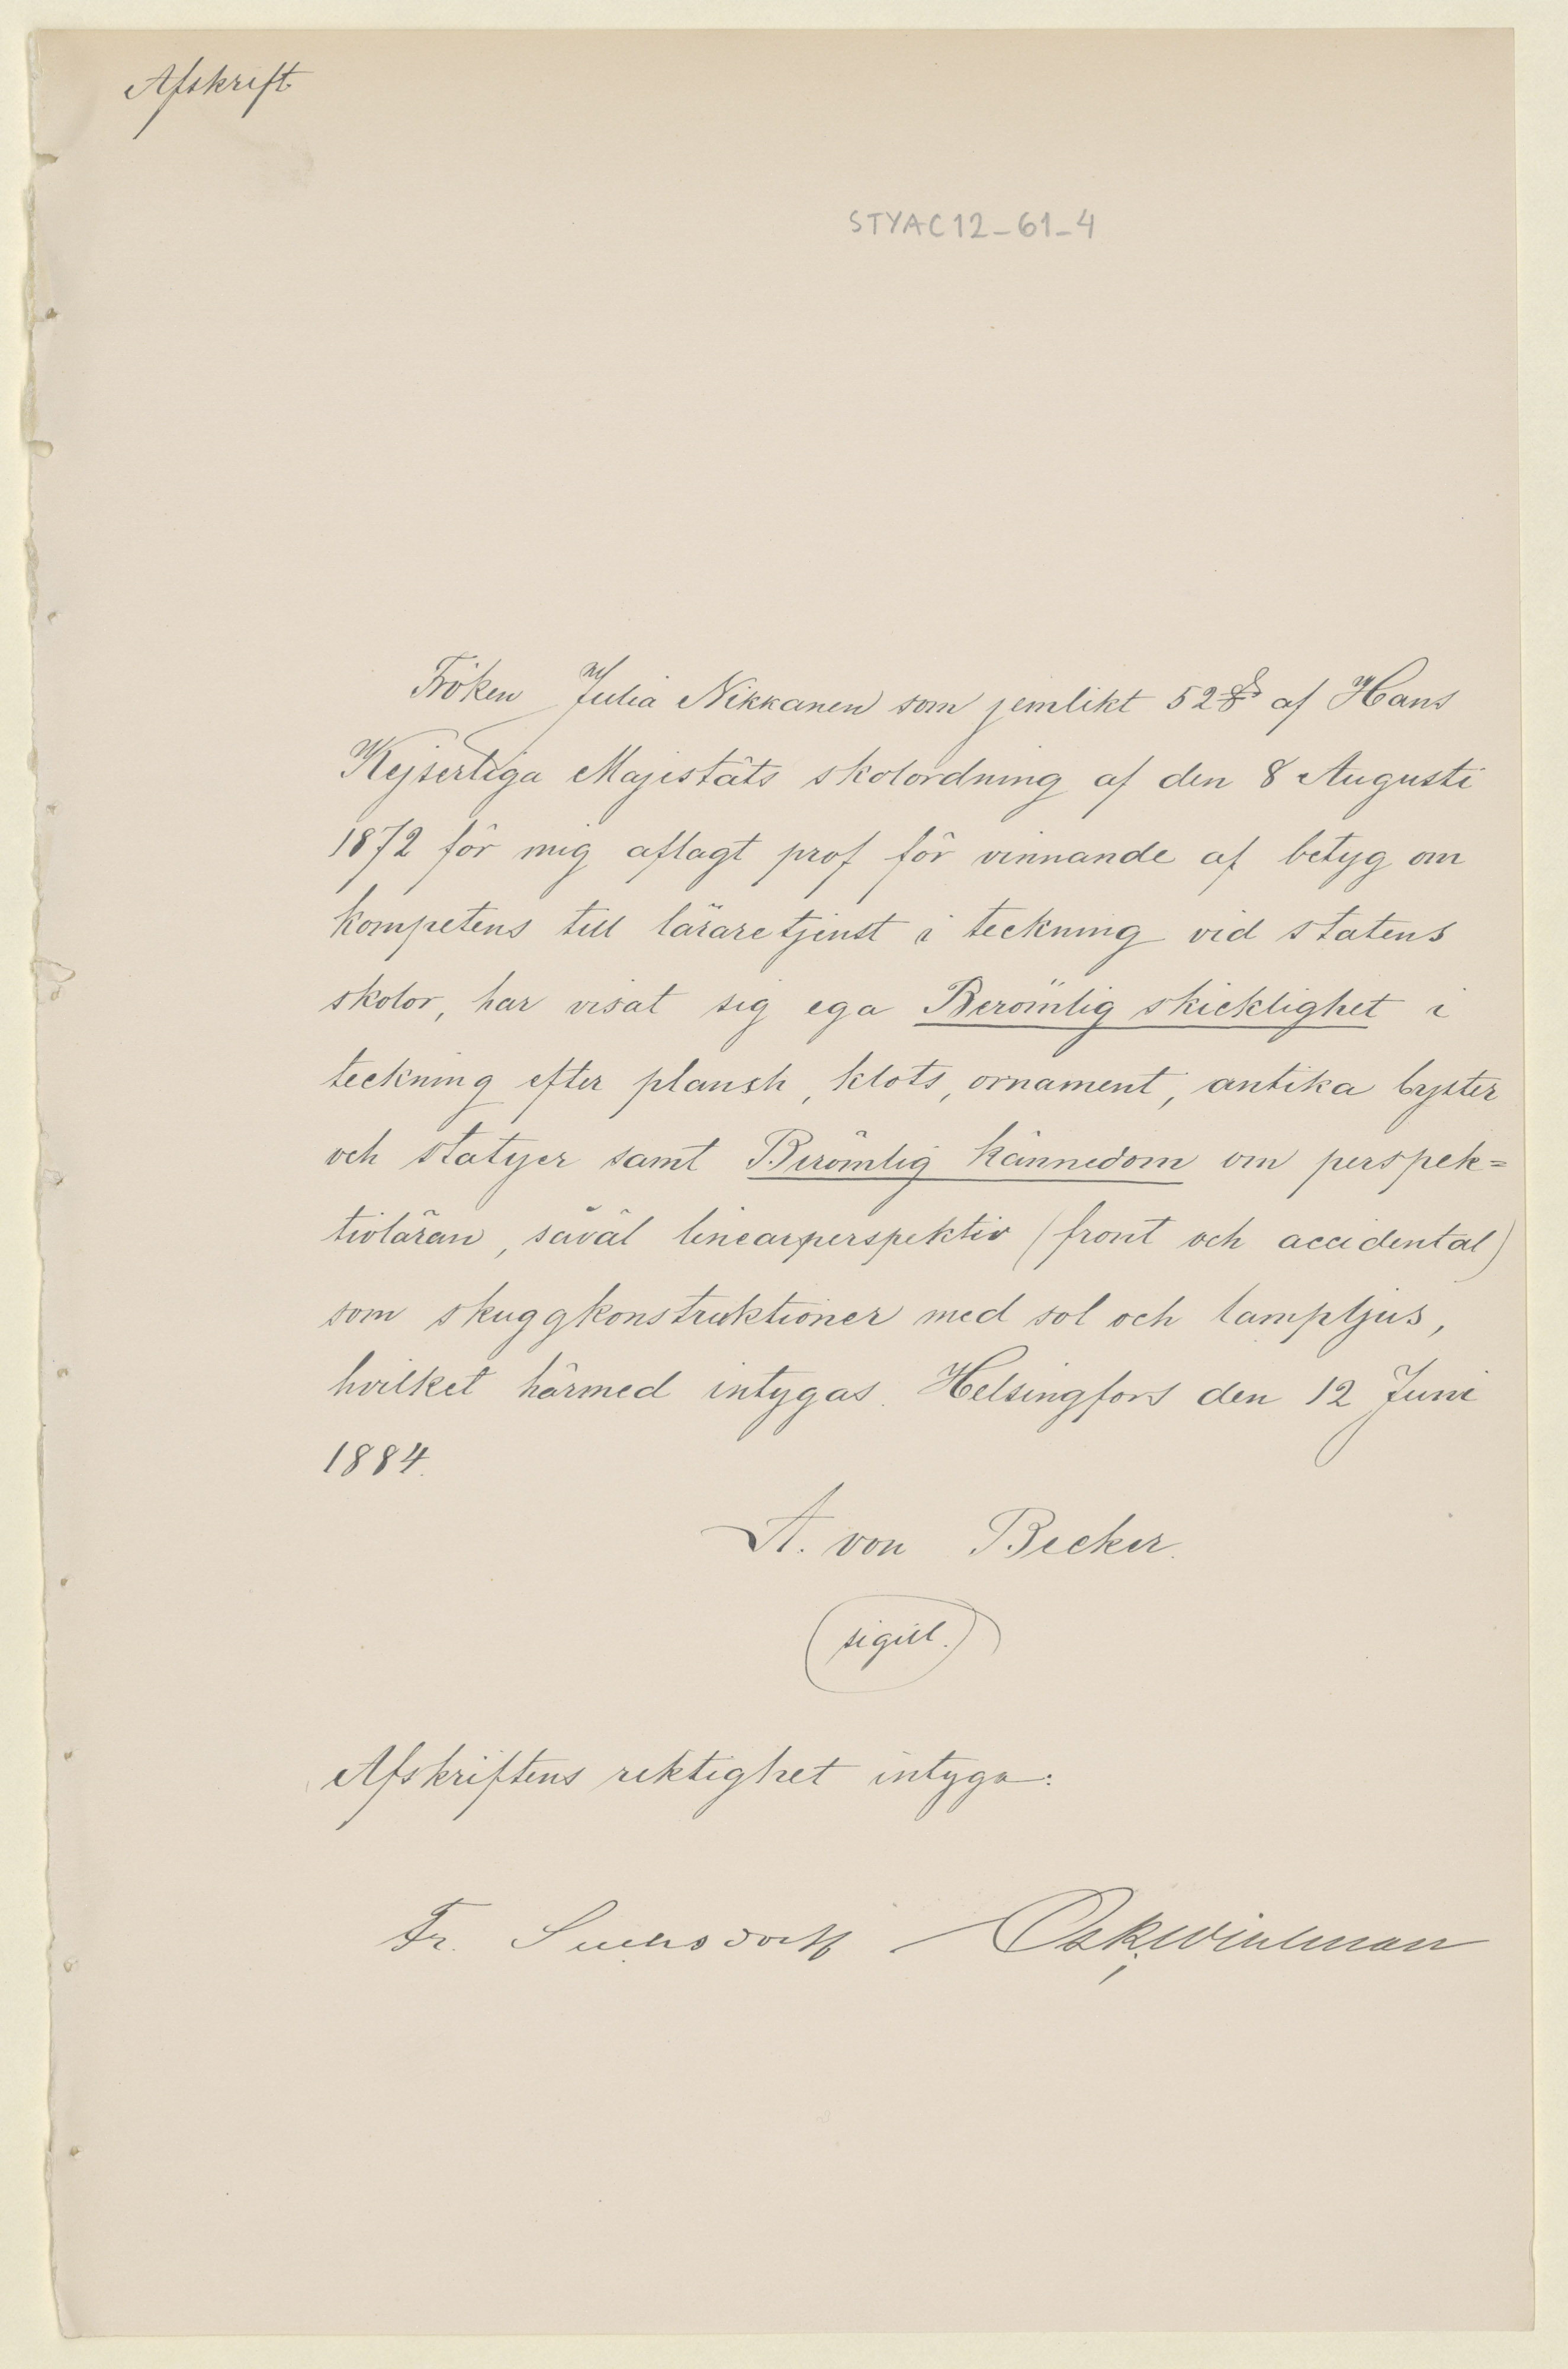 Afskrift
STYAC12-61-4
Fröken Julia Nikkanen som jemlikt 52 § af Hans
Kejserliga Majestäts skolordning af den 8 Augusti
1872 för mig aflagt prof för vinnande af betyg om
kompetens till läraretjenst i teckning vid statens
skolor, har visat sig ega Berömlig skicklighet i
teckning efter plansh, klots, ornament, antika byster
och statyer samt Berömlig kännedom om perspek=
tivläran, såväl linearperspektiv (front och accidental)
som skuggkonstruktioner med sol och lampljus,
hvilket härmed intygas. Helsingfors den 12 Juni
1884.
A. von Becker.
(sigill.)
Afskriftens riktighet intyga:
Fr. Suchsdorff Osk. Winlman